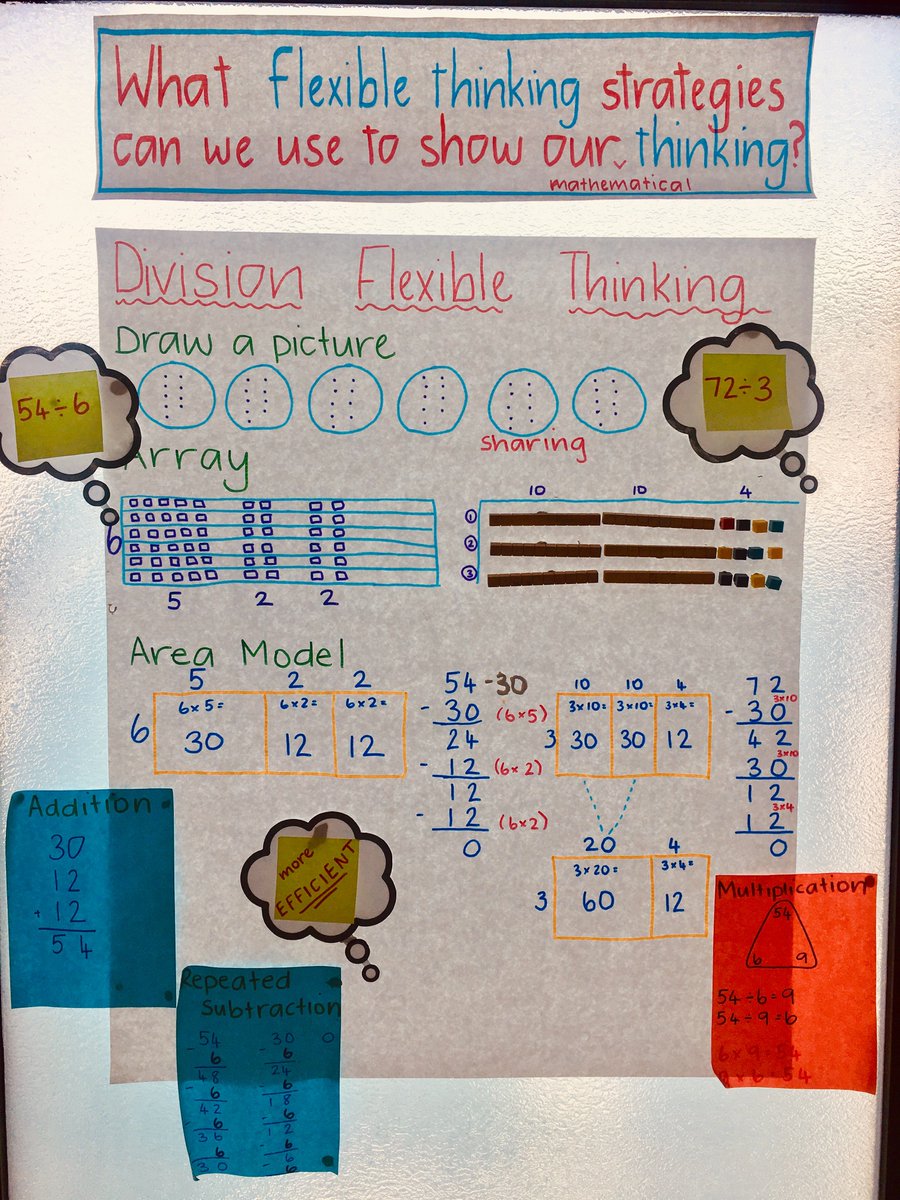 What flexible thinking strategies
can we use to show our thinking?
mathematical
Division Flexible Thinking
Draw a picture
54÷6
72÷3
sharing
Array
6
5 2 2
10 10 4
1
2
3
Area Model
5 2 2
6
6x5= 6x2= 6x2=
30 12 12
54 -30
- 30 (6x5)
24
- 12 (6x2)
12
- 12 (6x2)
0
10 10 4
3x10= 3x10= 3x4=
3 30 30 12
20 4
3x20= 3x4=
3 60 12
72
3x10
- 30
42
3x10
30
12
3x4
12
0
Addition
30
12
+ 12
54
more
EFFICIENT
Repeated
Subtraction
54
- 6
48
- 6
42
- 6
36
- 6
30
30
- 6
24
- 6
18
- 6
12
- 6
- 6
0
Multiplication
54
6 9
54÷6=9
54÷9=6
6x9=54
9x6=54